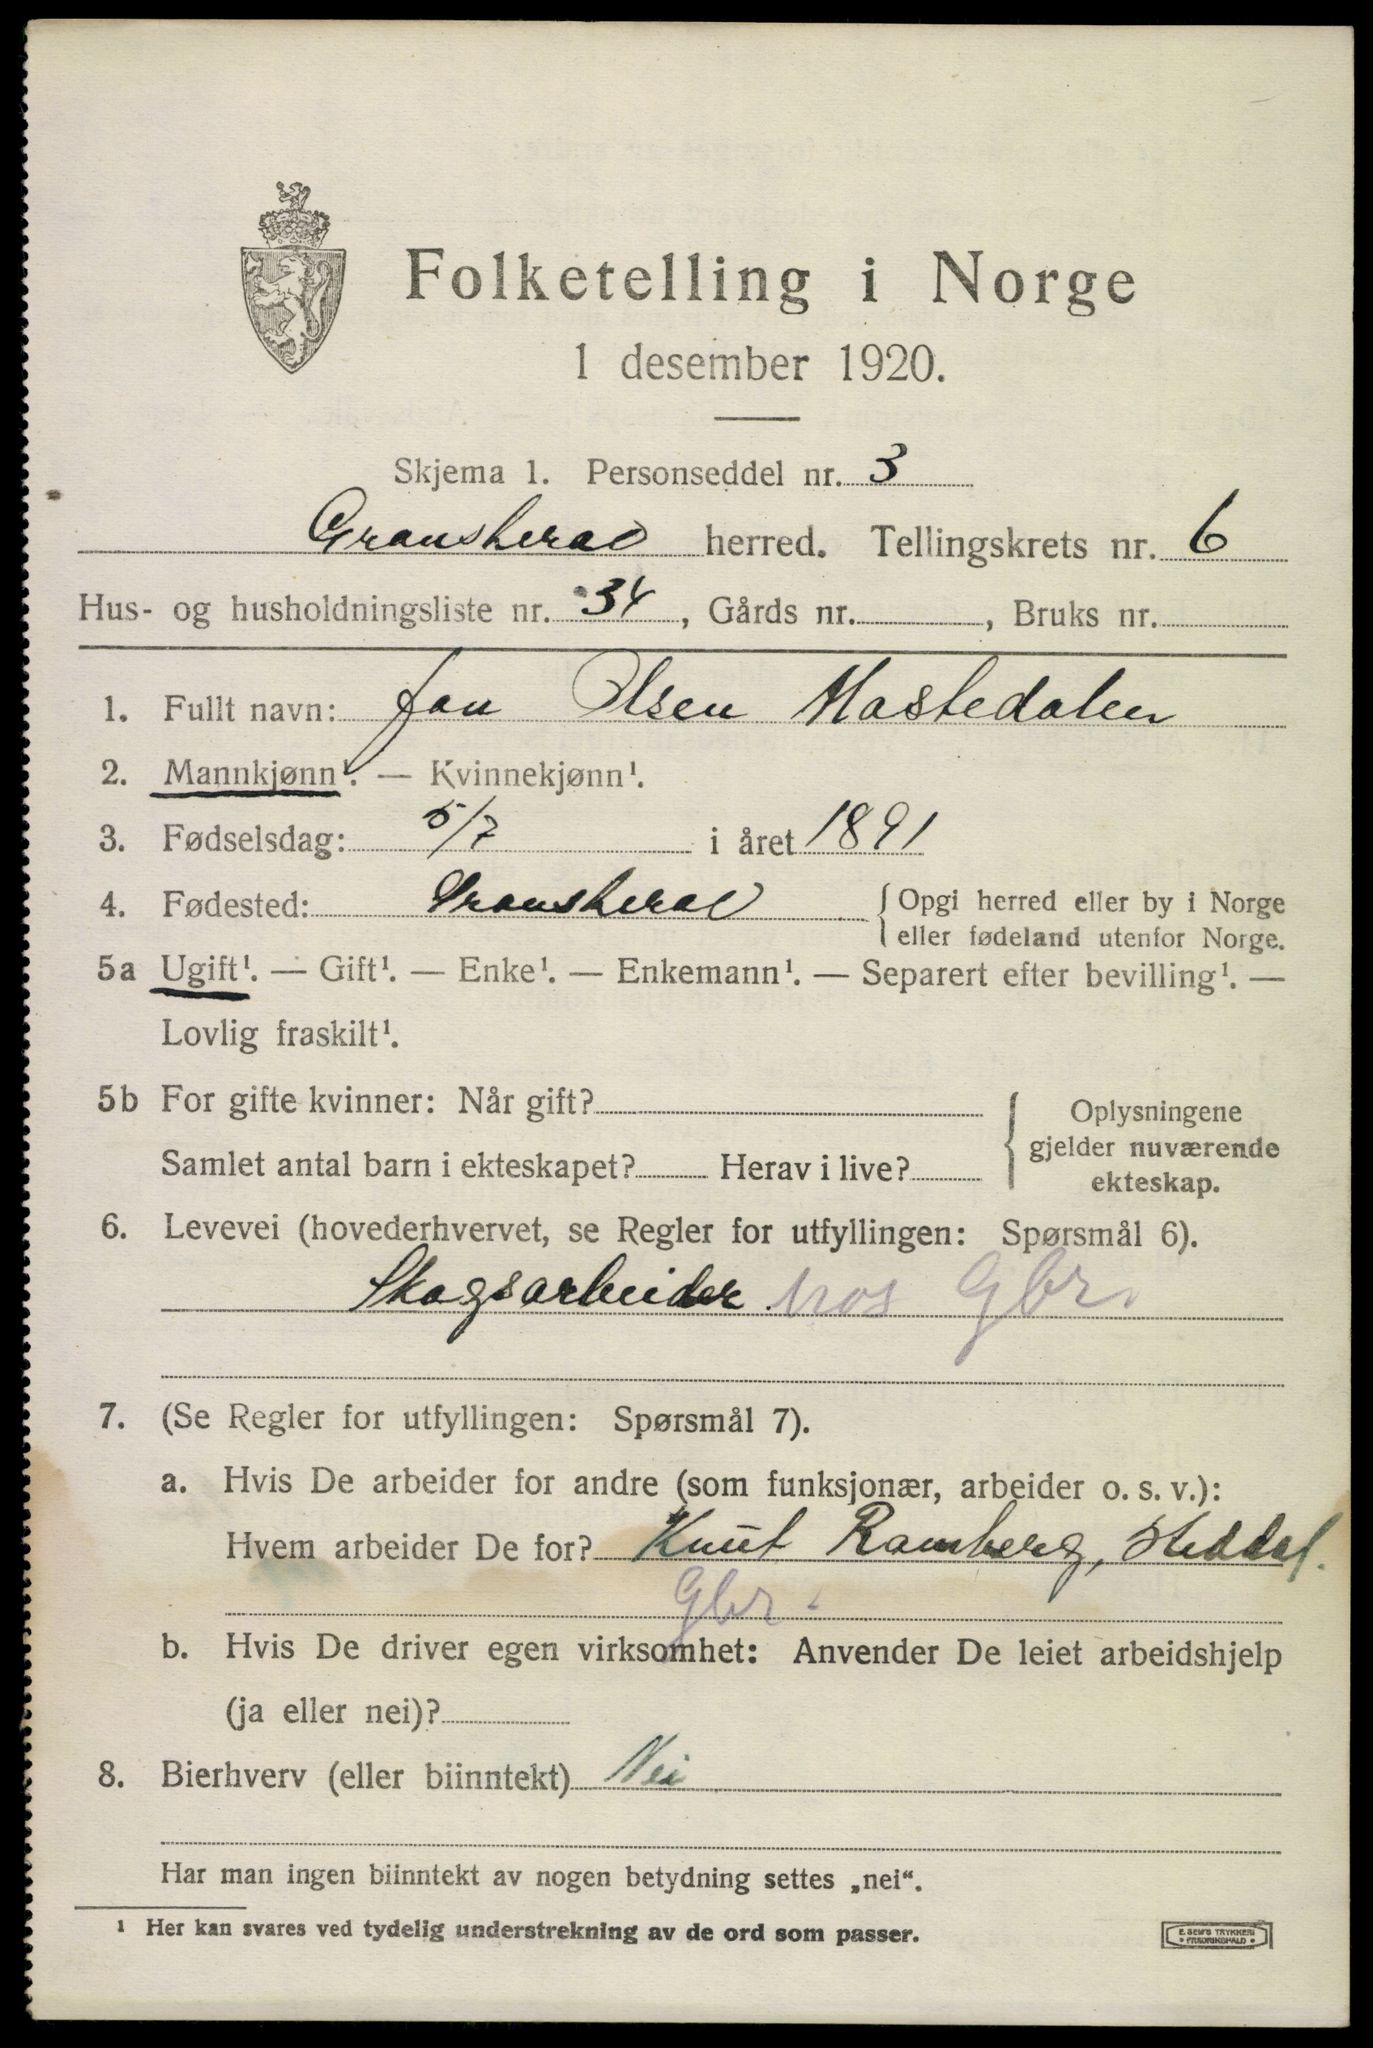 Folketelling i Norge
1 desember 1920.
Skjema 1. Personseddel nr. 3
Gransherad herred. Tellingskrets nr. 6
Hus- og husholdningsliste nr. 34, Gårds nr. , Bruks nr.
1. Fullt navn: Jon Olsen Mastedalen
2. Mannkjønn¹. — Kvinnekjønn¹.
3. Fødselsdag: 5/7 i året 1891
4. Fødested: Gransherad { Opgi herred eller by i Norge
eller fødeland utenfor Norge.
5a Ugift¹. — Gift¹. — Enke¹. — Enkemann¹. — Separert efter bevilling¹. —
Lovlig fraskilt¹.
5b For gifte kvinner: Når gift? { Oplysningene
gjelder nuværende
Samlet antal barn i ekteskapet? Herav i live?
ekteskap.
6. Levevei (hovederhvervet, se Regler for utfyllingen: Spørsmål 6).
Skogsarbeider hos Gbr.
7. (Se Regler for utfyllingen: Spørsmål 7).
a. Hvis De arbeider for andre (som funksjonær, arbeider o. s. v.):
Hvem arbeider De for? Knut Ramberg, Heddal.
Gbr.
b. Hvis De driver egen virksomhet: Anvender De leiet arbeidshjelp
(ja eller nei)?
8. Bierhverv (eller biinntekt) Nei
Har man ingen biinntekt av nogen betydning settes „nei“.
¹ Her kan svares ved tydelig understrekning av de ord som passer.
E. SEM'S TRYKKERI
FREDRIKSHALD